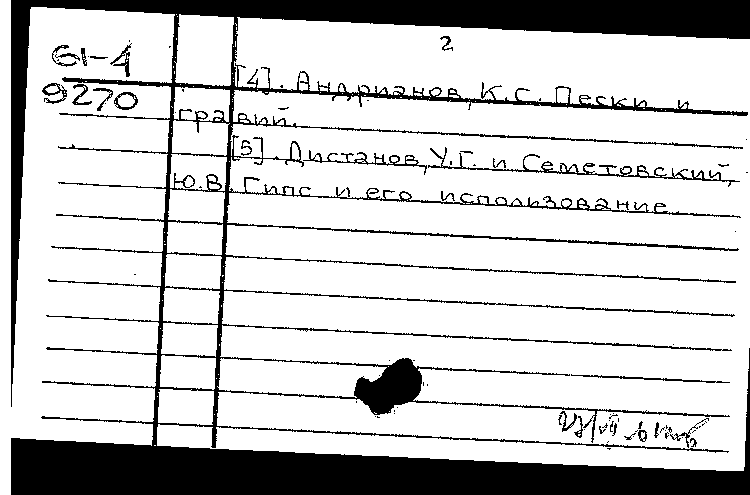 2
61-4
9270
[4]. Андрианов, К.С. Пески и
гравий.
[5]. Дистанов, У.Г. и Семетовский,
Ю.В. Гипс и его использование.